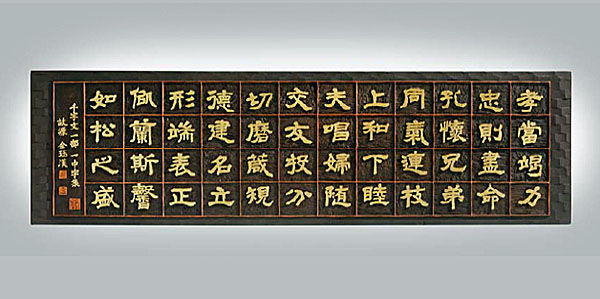 孝當竭力
忠則盡命
孔懷兄弟
同氣連枝
上和下睦
夫唱婦随
交友投分
切磨箴規
德建名立
形端表正
似蘭斯馨
如松之盛
千字文一部